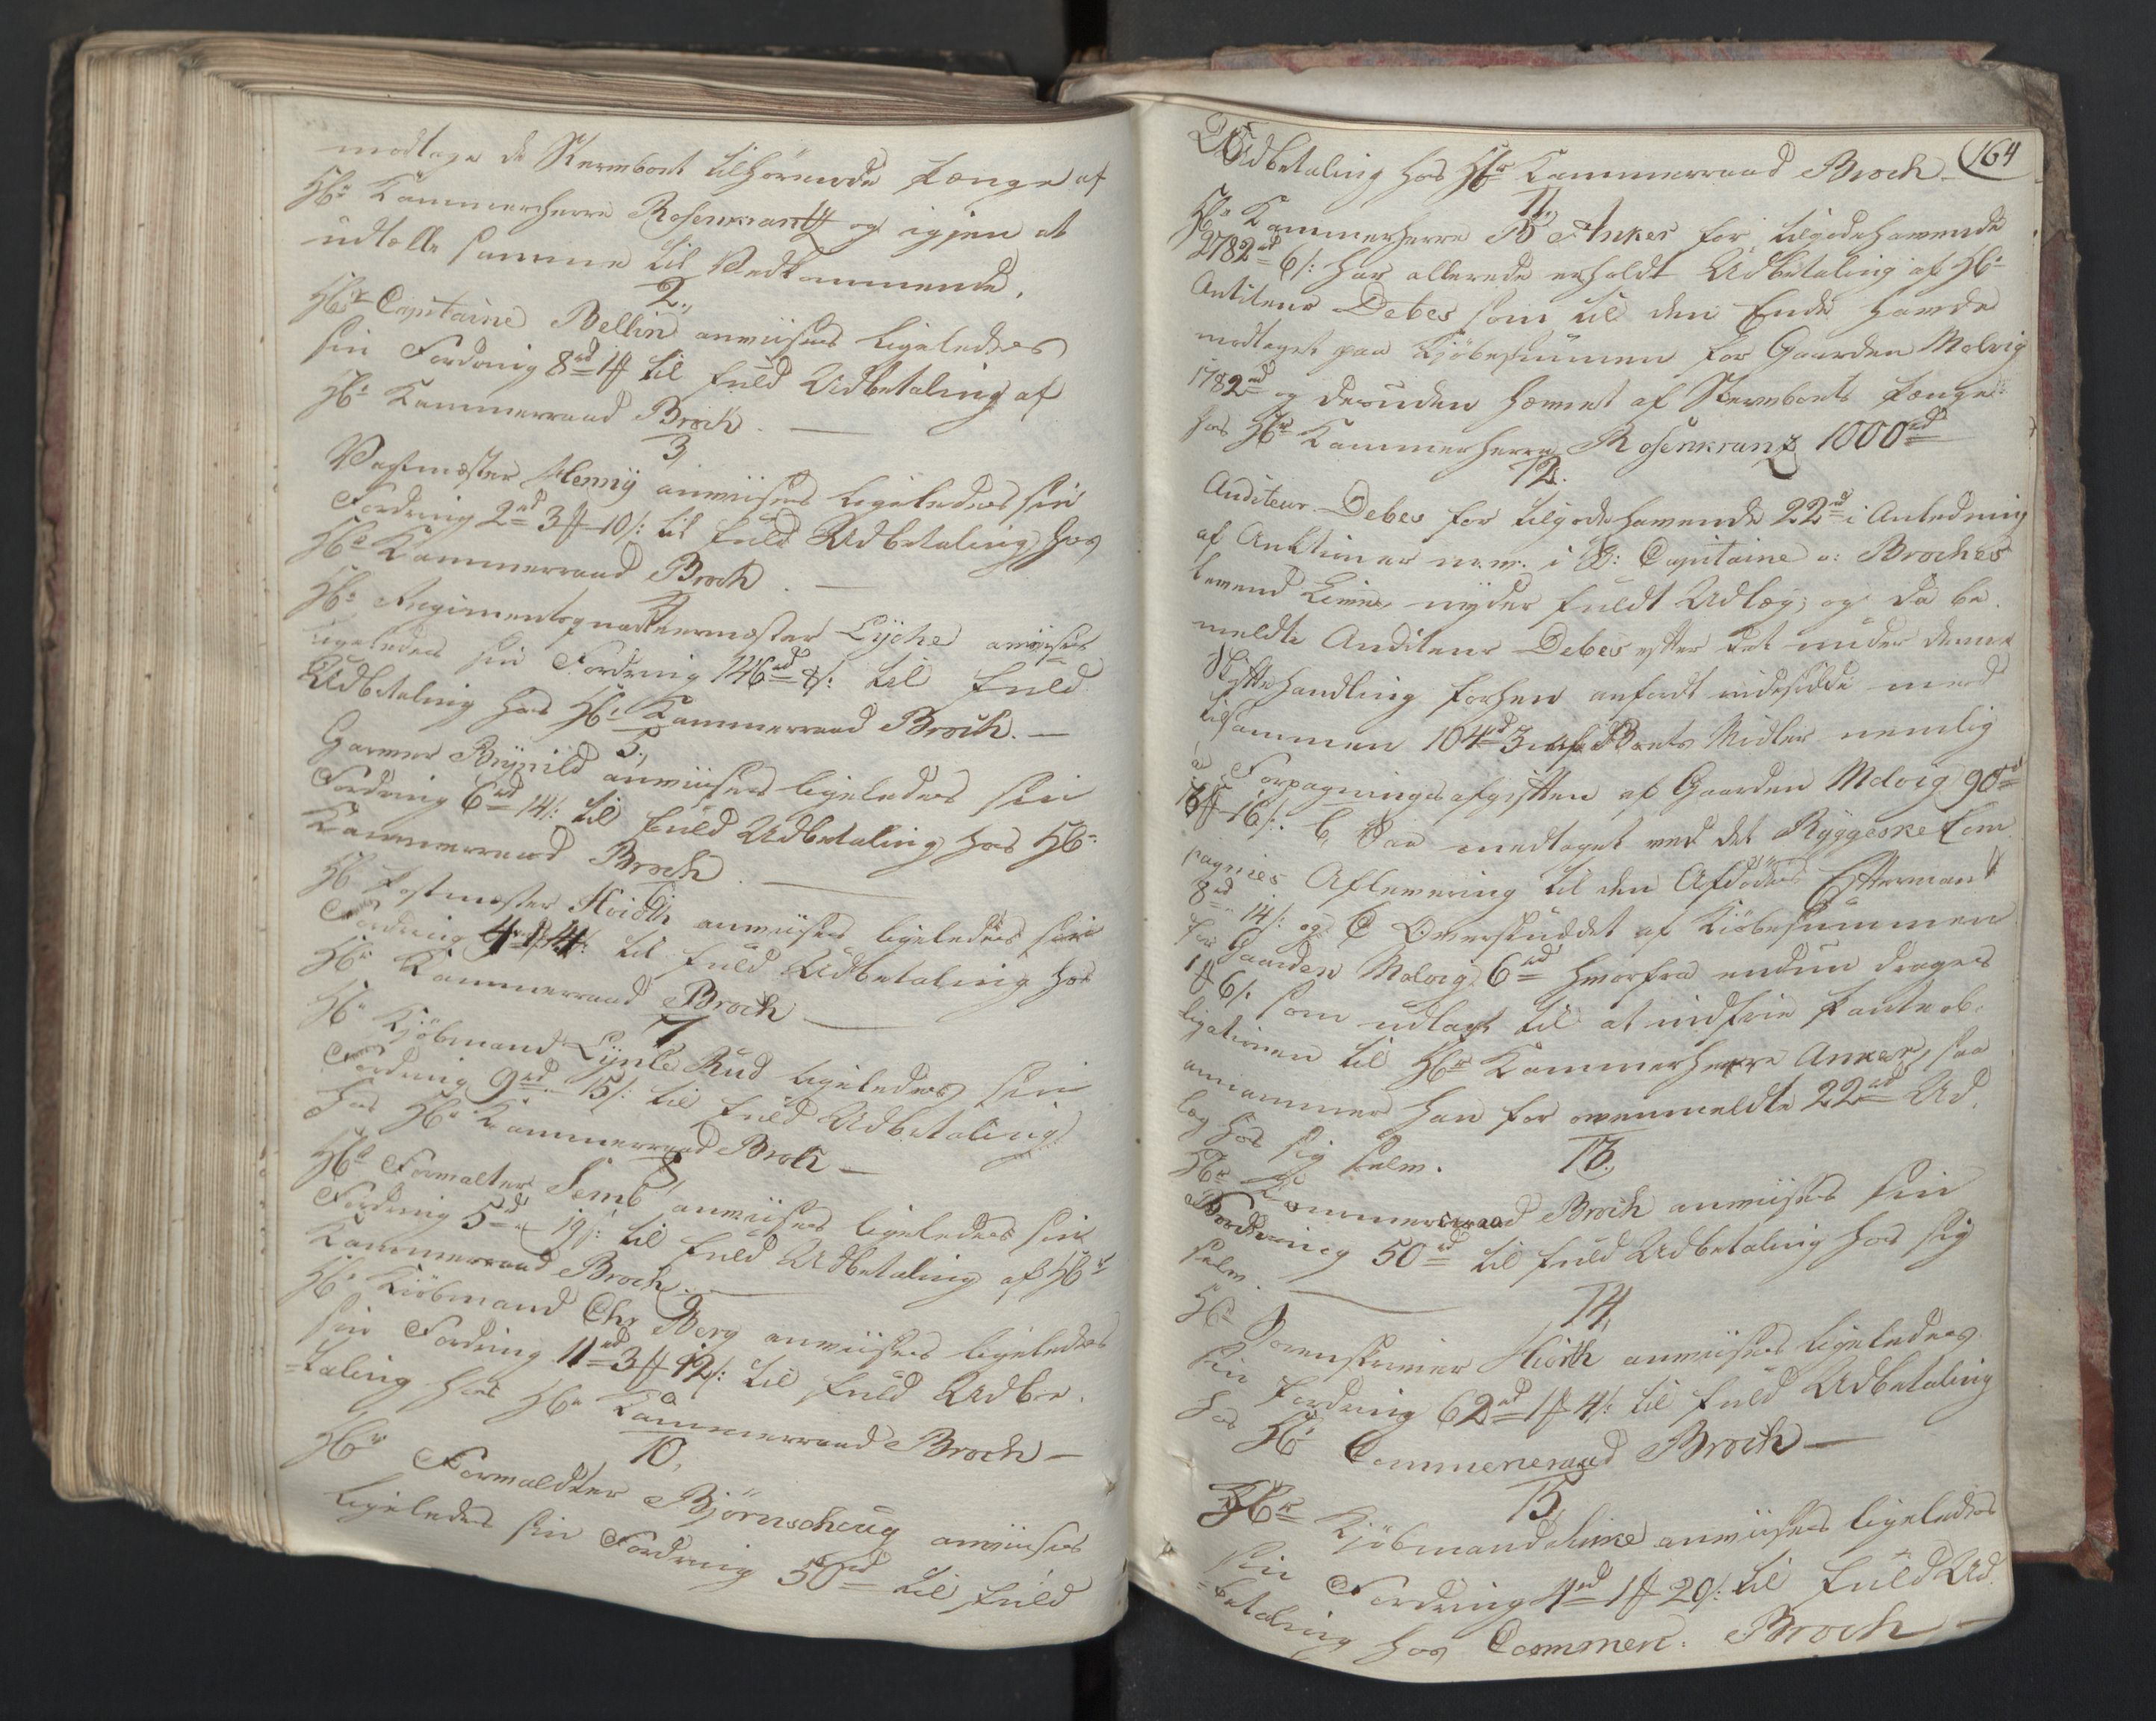 modtage de Stervboet tilhørende Penge af
Hr Kammerherre Rosenkrantz og igjen at
udtælle samme til Vedkommende.
2.,
Hr Capitaine Bellin anviises ligeledes
sin Fordring 8rd 1 ff til fuld Udbetaling af
Hr Kammerraad Broch. —
3,
Vagtmester Henny anviises ligeledes sin
Fordring 2rd 3 ff 10 s: til fuld Udbetaling hos
Hr Kammerraad Broch. —
4
Hr Regimentsquarteermester Lyche anviises
ligeledes sin Fordring 146rd 8 s: til fuld
Udbetaling hos Hr Kammerraad Broch. —
5.,
Garver Brynild anviises ligeledes sin
Fordring 6rd 14 s: til fuld Udbetaling hos Hr
Kammerraad Broch. —
Hr Postmester anviises ligeledes sin
Fordring til fuld Udbetaling hos
Hr Kammerraad Broch —
7
Hr Kjøbmand Rud ligeledes sin
Fordring 9rd 15 s: til fuld Udbetaling
hos Hr Kammerraad Broch —
8
Hr Forvalter Semb anviises ligeledes sin
Fordring 5rd 19 s: til fuld Udbetaling af Hr
Kammerraad Broch. —
Hr Kiøbmand Chr Berg anviises ligeledes
sin Fordring 11rd 3 ff 12 s: til fuld Udbe-
-taling hos Hr Kammerraad Broch —
10,
Hr Forvaldter Bjørnscheug anviises
ligeledes sin Fordring 50rd til fuld
164
Udbetaling hos Hr Kammerraad Broch —
11,
Hr Kammerherre B Anker for tilgodehavende
2782rd 6 s: har allerede erholdt Udbetaling af Hr
Auditeur Debes som til den Ende havde
modtaget paa Kjøbesummen for Gaarden Molvig
1782rd og desuden hævet af Stervboets Penge
hos Hr Kammerherre Rosenkranz 1000rd
12.
Auditeur Debes for tilgodehavende 22rd i Anledning
af Auktioner m. v. i Capitaine v: Broches
levend Live, nyder fuldt Udlæg; og da be-
meldte Auditeur Debes efter det under denne
Skiftehandling forhen anførdt indesidde med
tilsammen 104rd 3 af Boets Midler nemlig
a, Forpagtningsafgiften af Gaarden Molvig 90rd
16 s. b, Saa modtaget ved det Ryggeske Com-
pagnies Aflevering til den Afdødes Eftermand
8rd 14 s: og C Overskuddet af Kiøbesummen
for Gaarden Molvig 6rd hvorfra endnu drages
1 ff 6 s. som udlagt til at indfrie Panteob-
ligationen til Hr Kammerherre Anker, saa
annammer han for ovenmeldte 22rd Ud-
læg hos sig selv.
13.,
Hr Kammerraad Broch anviises sin
Fordring 50rd til fuld Udbetaling hos sig
selv. —
14,
Hr Sorenskriver Hiorth anviises ligeledes
sin Fordring 62rd 1 ff 4 s: til fuld Udbetaling
hos Hr Cammerraad Broch —
15,
Hr Kjøbmand anviises ligeledes
sin Fordring 4rd 1 ff 20 s: til fuld Ud-
-betaling hos Cammerr. Broch —